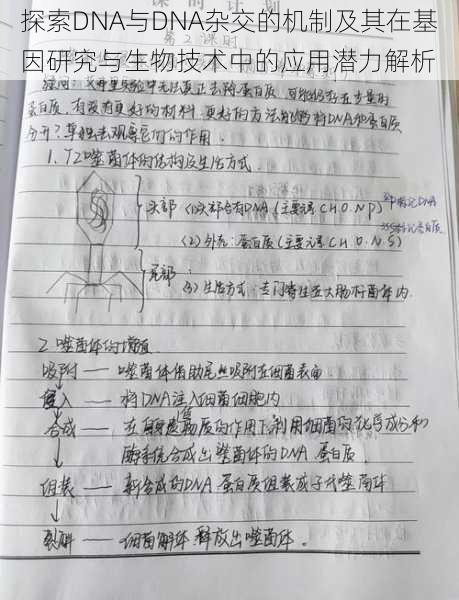 探索DNA与DNA杂交的机制及其在基
因研究与生物技术中的应用潜力解析
时 计 划
第2课时
蛋白质,有没有更好的材料,更好的方法能够将DNA和蛋白质
分开?单独去观察它们的作用.
1. T2噬菌体的结构及生活方式.
头部 (1)头部含有DNA(主要元素C H O N P) 32P标记DNA
(2)外壳:蛋白质(主要元素C H O N S) 35S标记蛋白质
尾部
(3)生活方式:专门寄生在大肠杆菌体内.
2. 噬菌体的增殖
吸附 —— 噬菌体借助尾丝吸附在细菌表面
侵入 —— 将DNA注入细菌细胞内
合成 —— 在遗传物质的作用下,利用细菌的化学成分和
酶系统合成出噬菌体的DNA、蛋白质.
组装 —— 新合成的DNA 蛋白质组装成子代噬菌体
裂解 —— 细菌解体 释放出噬菌体.